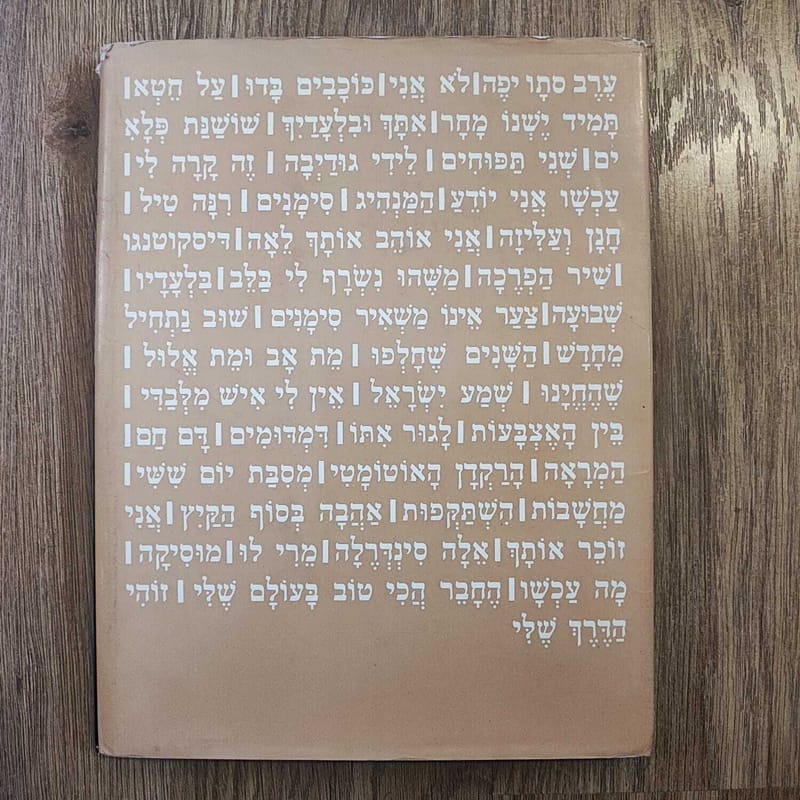 עֶרֶב סתָו יפֶה|לֹא אֲנִי|כּוֹכָבִים בָּדוּ|עַל חֵטְא|
תָּמִיד יֶשְׁנוֹ מָחָר|אִתָּךְ וּבִלְעָדַיִךְ|שׁוֹשַׁנַּת פְּלָא
יִם|שְׁנֵי תַּפּוּחִים|לֵידִי גּוּדַיְבָה|זֶה קָרָה לִי|
עַכְשָׁו אֲנִי יוֹדֵעַ|הַמַּנְהִיג|סִימָנִים|רִנָּה טִיל|
חָנָן וְעַלִּיזָה|אֲנִי אוֹהֵב אוֹתָךְ לֵאָה|דִּיסְקוֹטַנְגּוֹ
|שִׁיר הַפְּרֵכָה|מַשֶּׁהוּ נִשְׂרָף לִי בַּלֵּב|בִּלְעָדָיו|
שְׁבוּעָה|צַעַר אֵינוֹ מַשְׁאִיר סִימָנִים|שׁוּב נַתְחִיל
מֵחָדָשׁ|הַשָּׁנִים שֶׁחָלְפוּ|מֵת אָב וּמֵת אֱלוּל|
שֶׁהֶחֱיָנוּ|שְׁמַע יִשְׂרָאֵל|אֵין לִי אִישׁ מִלְּבַדִּי|
בֵּין הָאֶצְבָּעוֹת|לָגוּר אִתּוֹ|דִּמְדּוּמִים|דָּם חַם|
הַמְּרָאָה|הָרַקְדָן הָאוֹטוֹמָטִי|מְסִבַּת יוֹם שִׁשִּׁי|
מַחֲשָׁבוֹת|הִשְׁתַּקְּפוּת|אַהֲבָה בְּסוֹף הַקַּיִץ|אֲנִי
זוֹכֵר אוֹתָךְ|אֵלָה סִינְדֶּרֶלָּה|מֵרִי לוּ|מוּסִיקָה|
מָה עַכְשָׁו|הֶחָבֵר הֲכִי טוֹב בָּעוֹלָם שֶׁלִּי|זוֹהִי
הַדֶּרֶךְ שֶׁלִּי